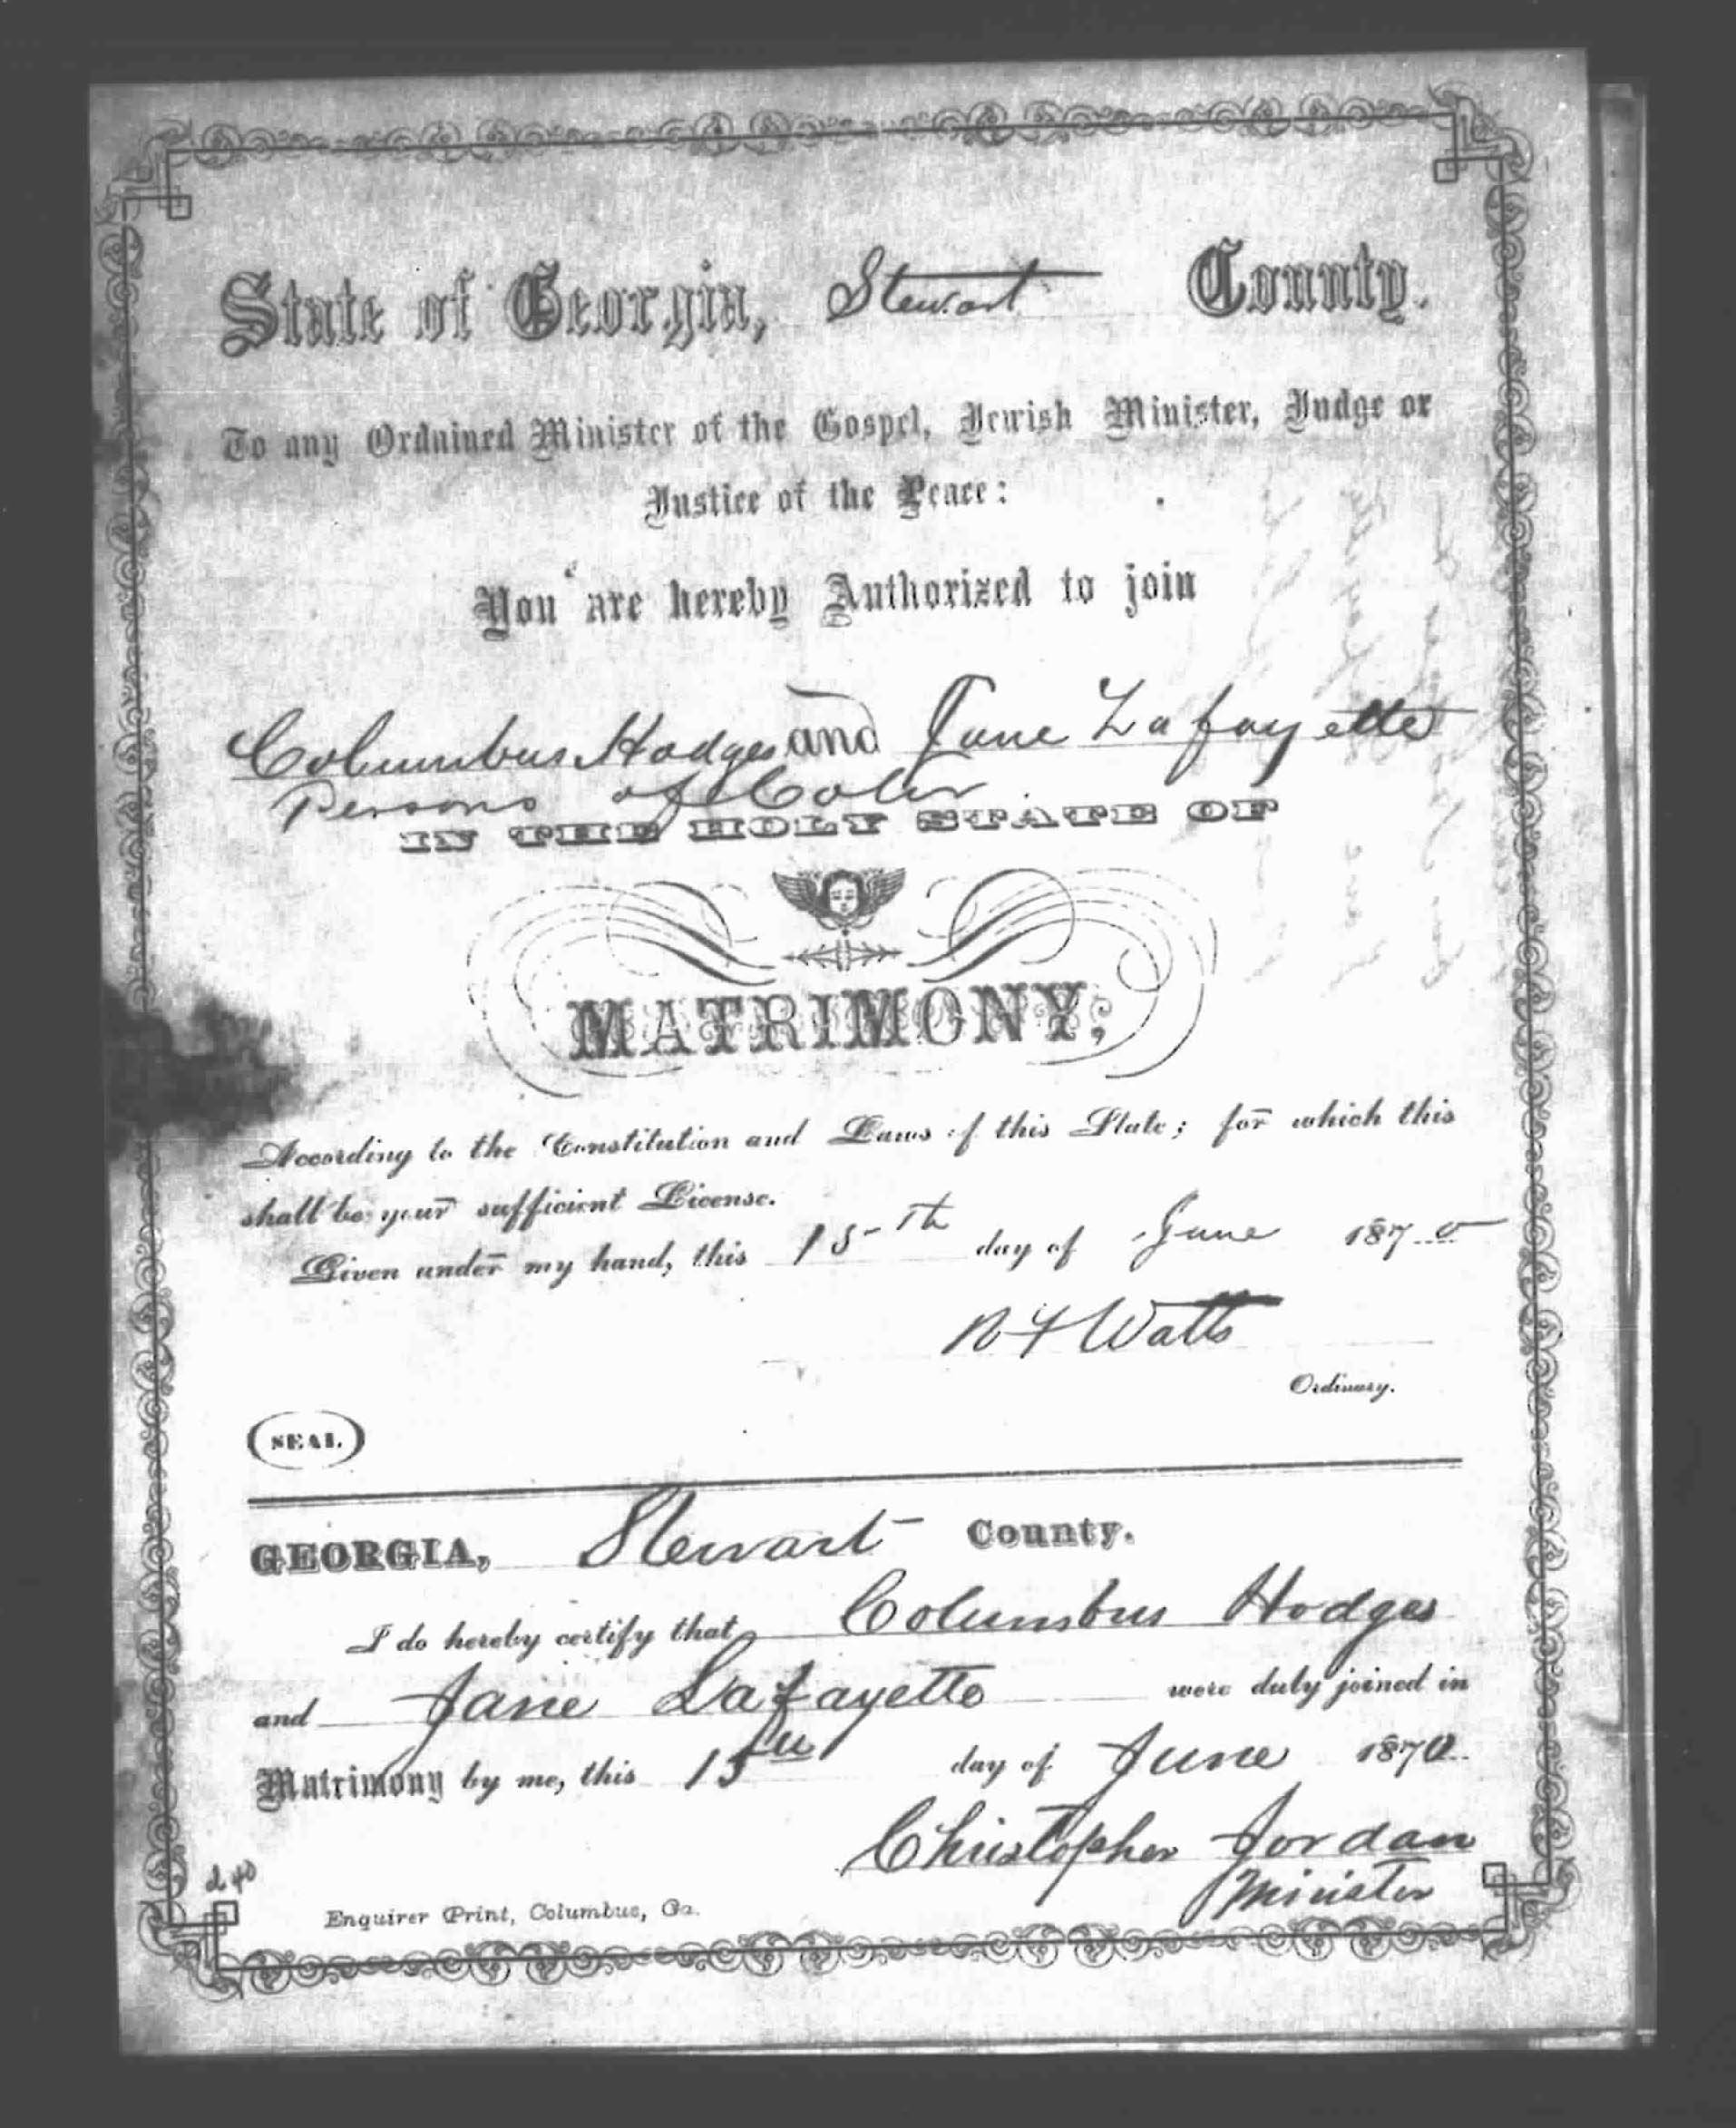 State of Georgia, Stewart County.
To any Ordained Minister of the Gospel, Jewish Minister, Judge or
Justice of the Peace:
You are hereby Authorized to join
Columbus Hodges and Jane Lafayette
Persons of Color
IN THE HOLY STATE OF
MATRIMONY,
According to the Constitution and Laws of this State; for which this
shall be your sufficient License.
Given under my hand, this 15th day of June 1870
Watts
Ordinary.
(SEAL)
GEORGIA, Stewart County.
I do hereby certify that Columbus Hodges
and Jane Lafayette were duly joined in
Matrimony by me, this 15th day of June 1870
Christopher Jordan
Minister
Enquirer Print, Columbus, Ga.